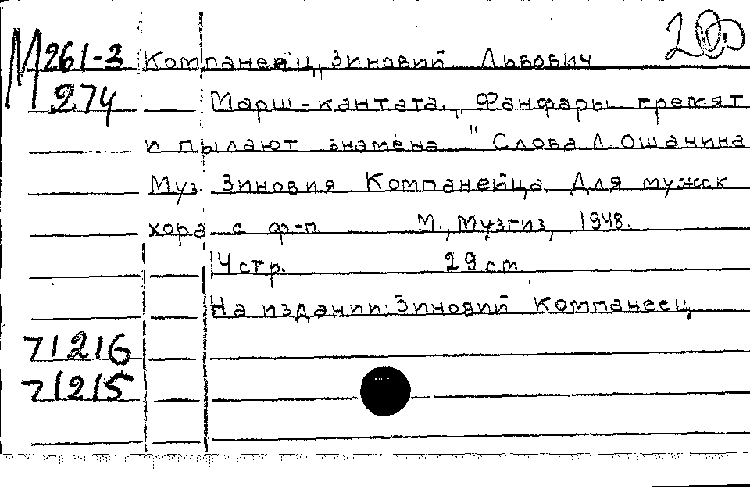 М 261-3 Компанейц, Зиновий Львович
274 Марш-кантата „Фанфары гремят
и пылают знамёна" Слова Л. Ошанина
Муз. Зиновия Компанейца. Для мужск
хора с ф-п М., Музгиз, 1948.
4 стр. 29 см.
На издании: Зиновий Компанеец
71216
71215